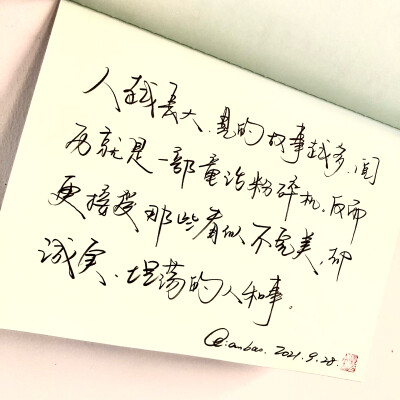 人越长大,见的故事越多,阅
历就是一部童话粉碎机,反而
更接受那些看似不完美,却
诚实、坦荡的人和事。
Qianbao. 2021.9.28.